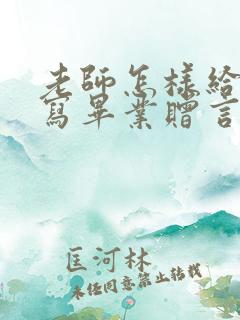 老師怎樣給
寫畢業贈言
匡河林
未经同意禁止转载